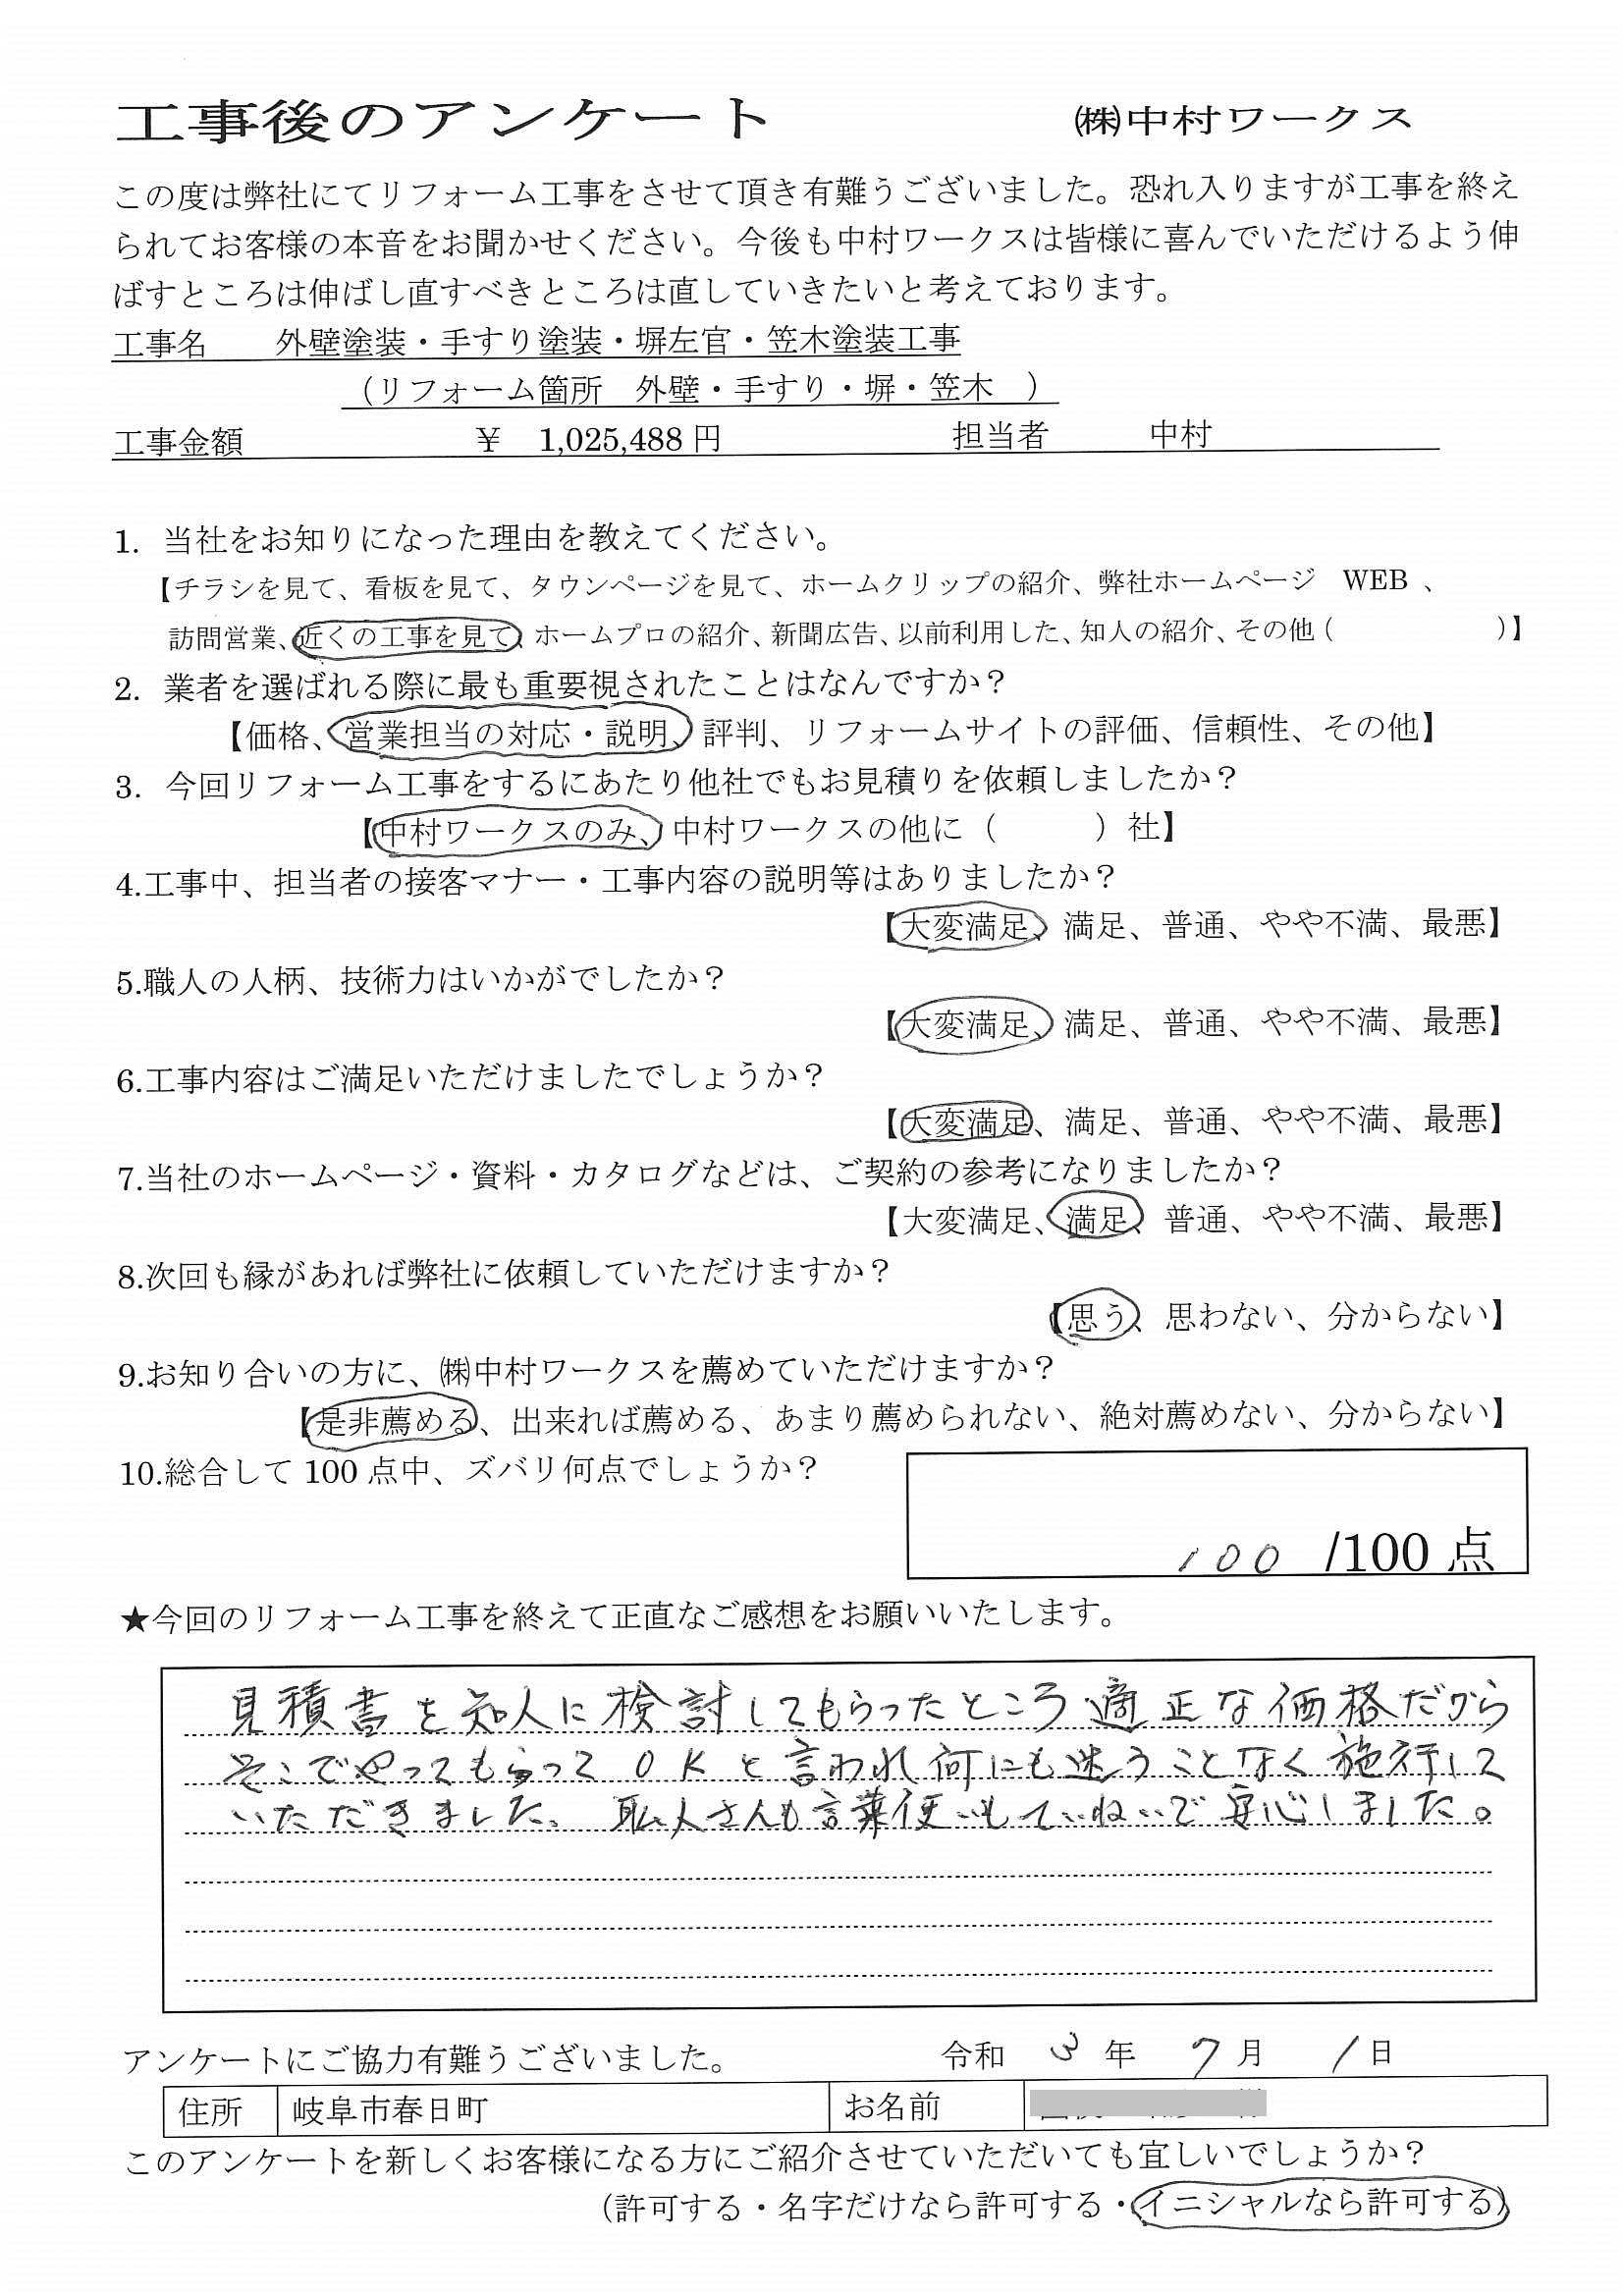 工事後のアンケート ㈱中村ワークス
この度は弊社にてリフォーム工事をさせて頂き有難うございました。恐れ入りますが工事を終え
られてお客様の本音をお聞かせください。今後も中村ワークスは皆様に喜んでいただけるよう伸
ばすところは伸ばし直すべきところは直していきたいと考えております。
工事名 外壁塗装・手すり塗装・塀左官・笠木塗装工事
（リフォーム箇所 外壁・手すり・塀・笠木 ）
工事金額 ￥ 1,025,488 円 担当者 中村
1. 当社をお知りになった理由を教えてください。
【チラシを見て、看板を見て、タウンページを見て、ホームクリップの紹介、弊社ホームページ WEB 、
訪問営業、近くの工事を見て、ホームプロの紹介、新聞広告、以前利用した、知人の紹介、その他（ ）】
2. 業者を選ばれる際に最も重要視されたことはなんですか？
【価格、営業担当の対応・説明、評判、リフォームサイトの評価、信頼性、その他】
3. 今回リフォーム工事をするにあたり他社でもお見積りを依頼しましたか？
【中村ワークスのみ、中村ワークスの他に（ ）社】
4.工事中、担当者の接客マナー・工事内容の説明等はありましたか？
【大変満足、満足、普通、やや不満、最悪】
5.職人の人柄、技術力はいかがでしたか？
【大変満足、満足、普通、やや不満、最悪】
6.工事内容はご満足いただけましたでしょうか？
【大変満足、満足、普通、やや不満、最悪】
7.当社のホームページ・資料・カタログなどは、ご契約の参考になりましたか？
【大変満足、満足、普通、やや不満、最悪】
8.次回も縁があれば弊社に依頼していただけますか？
【思う、思わない、分からない】
9.お知り合いの方に、㈱中村ワークスを薦めていただけますか？
【是非薦める、出来れば薦める、あまり薦められない、絶対薦めない、分からない】
10.総合して 100 点中、ズバリ何点でしょうか？
100 /100 点
★今回のリフォーム工事を終えて正直なご感想をお願いいたします。
見積書を知人に検討してもらったところ適正な価格だから
そこでやってもらって OKと言われ何にも迷うことなく施行して
いただきました、職人さんも言葉使いもていねいで安心しました。
アンケートにご協力有難うございました。 令和 3 年 7 月 1 日
住所 岐阜市春日町 お名前
このアンケートを新しくお客様になる方にご紹介させていただいても宜しいでしょうか？
（許可する・名字だけなら許可する・イニシャルなら許可する）